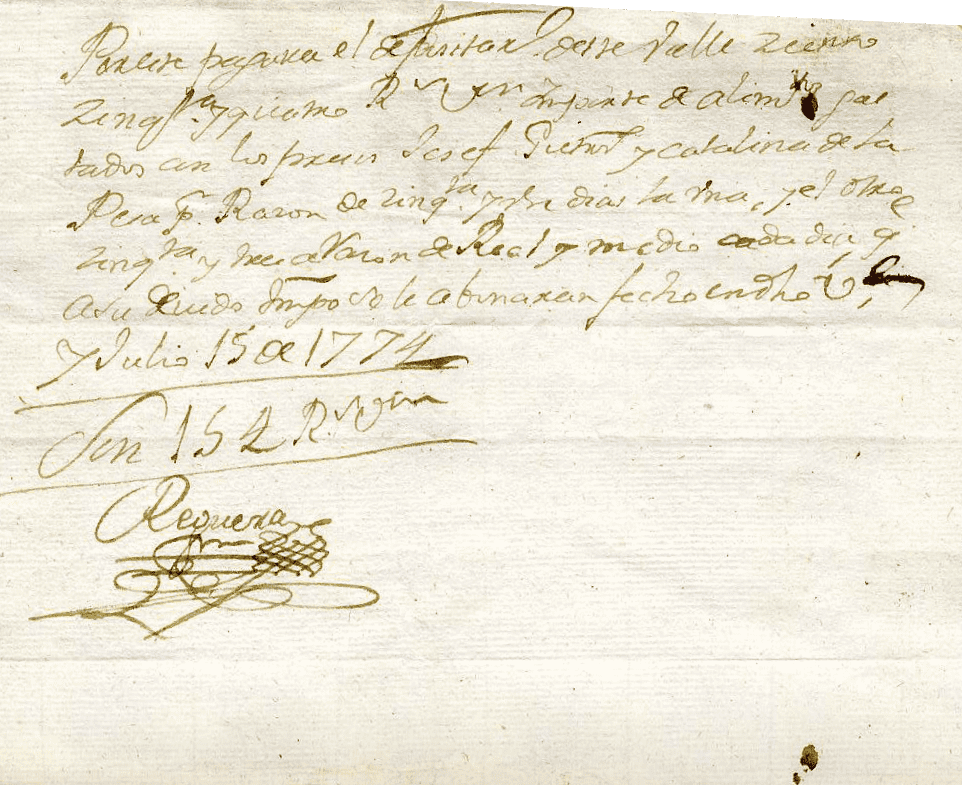 Poreste pagara el depositarº deste Valle Zciento
Zinqta y quatro Rs Von importe de alimtos gas
tados en los presos Josef y Catalina de la
Pesa pr Razon de zinqta y dias la una, y el otro
zinqta y tres a razon de Real y medio cada dia, q
a su devido tmpo se le abonaran fecho en dho Ve
y Julio 15 de 1774
Son 154 Rs Von
Requena